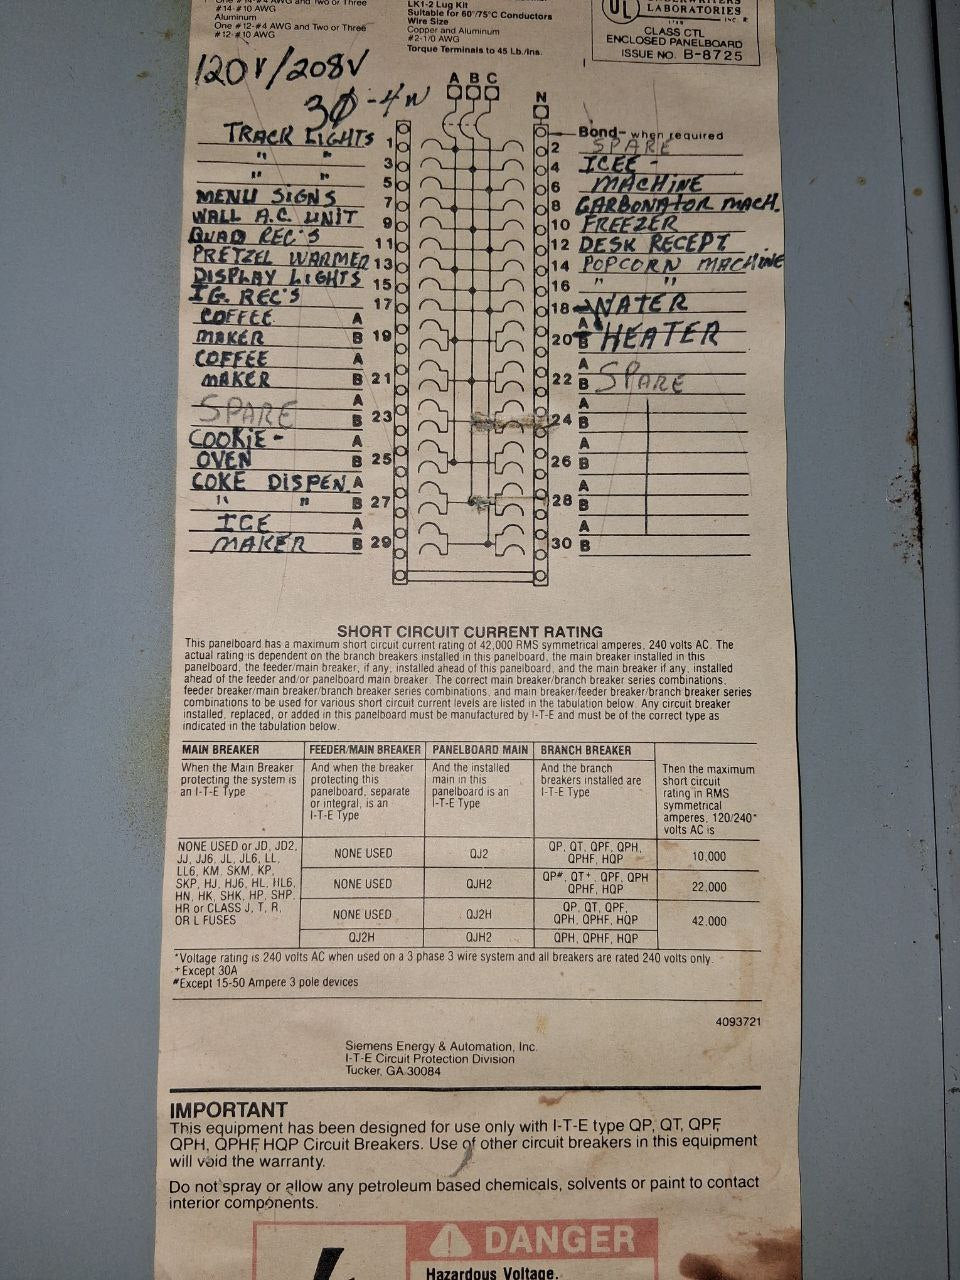 One #14-#4 AWG and Two or Three
#14-#10 AWG
Aluminum
One #12-#4 AWG and Two or Three
#12-#10 AWG
LK1-2 Lug Kit
Suitable for 60°/75°C Conductors
Wire Size
Copper and Aluminum
#2-1/0 AWG
Torque Terminals to 45 Lb./Ins.
UL
LABORATORIES
INC. ®
CLASS CTL
ENCLOSED PANELBOARD
ISSUE NO. B-8725
120V/208V
3Ø-4W
A B C
N
Bond-when required
TRACK LIGHTS 1 2 SPARE
" " 3 4 ICEE -
" " 5 6 MACHINE
MENU SIGNS 7 8 CARBONATOR MACH.
WALL A.C. UNIT 9 10 FREEZER
QUAD REC'S 11 12 DESK RECEPT
PRETZEL WARMER 13 14 POPCORN MACHINE
DISPLAY LIGHTS 15 16 " "
I.G. REC'S 17 18 WATER
COFFEE A A
MAKER B 19 20 B HEATER
COFFEE A A
MAKER B 21 22 B SPARE
SPARE A A
B 23 24 B
COOKIE - A A
OVEN B 25 26 B
COKE DISPEN. A A
" " B 27 28 B
ICE A A
MAKER B 29 30 B
SHORT CIRCUIT CURRENT RATING
This panelboard has a maximum short circuit current rating of 42,000 RMS symmetrical amperes, 240 volts AC. The
actual rating is dependent on the branch breakers installed in this panelboard, the main breaker installed in this
panelboard, the feeder/main breaker, if any, installed ahead of this panelboard, and the main breaker if any, installed
ahead of the feeder and/or panelboard main breaker. The correct main breaker/branch breaker series combinations,
feeder breaker/main breaker/branch breaker series combinations, and main breaker/feeder breaker/branch breaker series
combinations to be used for various short circuit current levels are listed in the tabulation below. Any circuit breaker
installed, replaced, or added in this panelboard must be manufactured by I-T-E and must be of the correct type as
indicated in the tabulation below.
MAIN BREAKER FEEDER/MAIN BREAKER PANELBOARD MAIN BRANCH BREAKER
When the Main Breaker
protecting the system is
an I-T-E Type
And when the breaker
protecting this
panelboard, separate
or integral, is an
I-T-E Type
And the installed
main in this
panelboard is an
I-T-E Type
And the branch
breakers installed are
I-T-E Type
Then the maximum
short circuit
rating in RMS
symmetrical
amperes, 120/240*
volts AC is
NONE USED or JD, JD2,
JJ, JJ6, JL, JL6, LL,
LL6, KM, SKM, KP,
SKP, HJ, HJ6, HL, HL6,
HN, HK, SHK, HP, SHP,
HR or CLASS J, T, R,
OR L FUSES
NONE USED QJ2 QP, QT, QPF, QPH,
QPHF, HQP 10,000
NONE USED QJH2 QP#, QT+, QPF, QPH
QPHF, HQP 22,000
NONE USED QJ2H QP, QT, QPF,
QPH, QPHF, HQP 42,000
QJ2H QJH2 QPH, QPHF, HQP
*Voltage rating is 240 volts AC when used on a 3 phase 3 wire system and all breakers are rated 240 volts only.
+Except 30A
#Except 15-50 Ampere 3 pole devices
4093721
Siemens Energy & Automation, Inc.
I-T-E Circuit Protection Division
Tucker, GA 30084
IMPORTANT
This equipment has been designed for use only with I-T-E type QP, QT, QPF,
QPH, QPHF, HQP Circuit Breakers. Use of other circuit breakers in this equipment
will void the warranty.
Do not spray or allow any petroleum based chemicals, solvents or paint to contact
interior components.
DANGER
Hazardous Voltage.